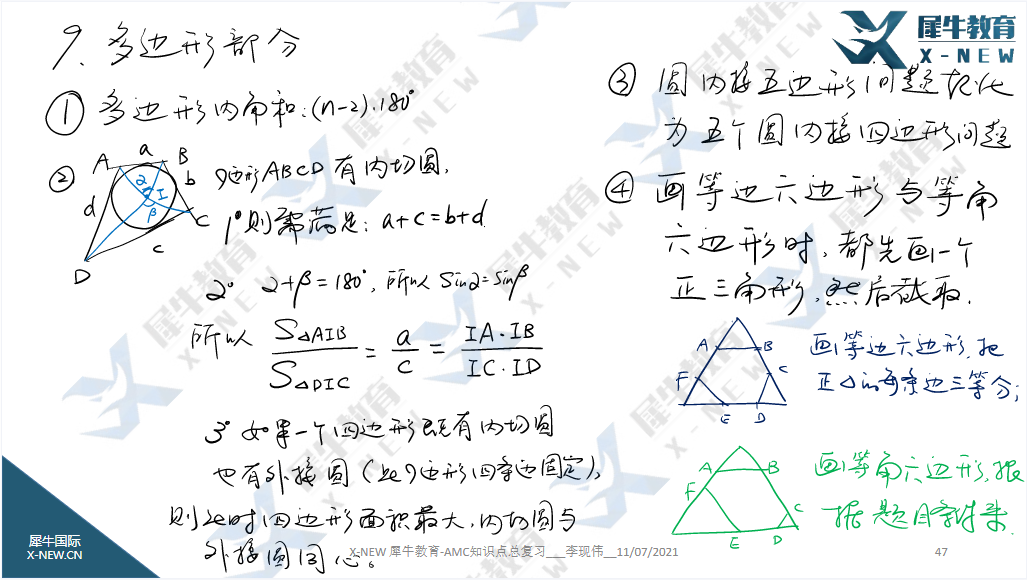 9. 多边形部分
① 多边形内角和:(n-2)·180°
② 四边形ABCD有内切圆,
A a B
b
d
2 I
β
C
c
D
1° 则需满足: a+c=b+d.
2° 2+β=180°, 所以 Sin2=Sinβ
所以 S△AIB / S△DIC = a/c = IA·IB / IC·ID
3° 如果一个四边形既有内切圆
也有外接圆(此四边形四条边固定),
则此时四边形面积最大,内切圆与
外接圆同心。
犀牛教育
X-NEW
③ 圆内接五边形问题转化
为五个圆内接四边形问题
④ 画等边六边形与等角
六边形时,都先画一个
正三角形,然后截取.
A B
F C
E D
画等边六边形,把
正△的每条边三等分;
A B
F
C
E D
画等角六边形,根
据题目条件来.
犀牛国际
X-NEW.CN
X-NEW 犀牛教育-AMC知识点总复习___李现伟__11/07/2021
47